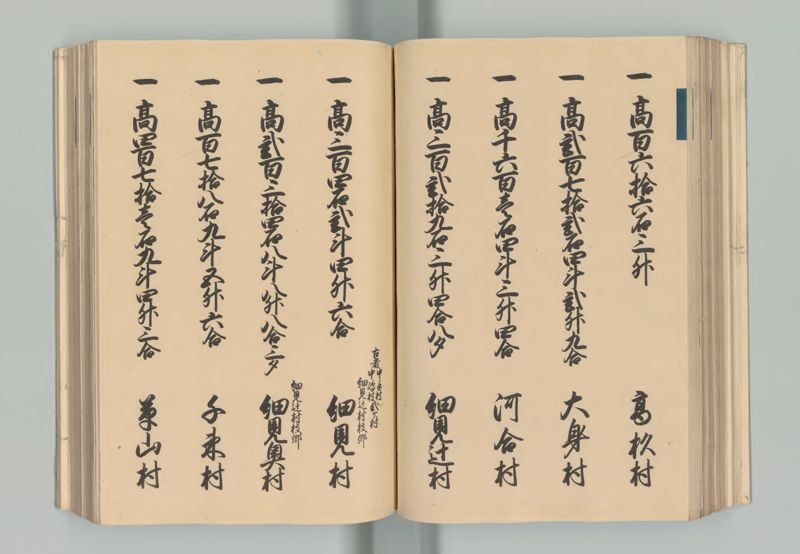 一高百六拾六石三升　高杦村
一高弐百七拾弐石四斗弐升九合　大身村
一高千六百壱石四斗三升四合　河合村
一高三百弐拾九石三升四合八夕　細見辻村
古者中出村
中嶋村弐ケ村
細見辻村枝郷
一高三百四石弐斗四升六合　細見村
細見辻村枝郷
一高弐百三拾四石八斗八升八合三夕　細見奥村
一高百七拾八石九斗五升六合　千束村
一高四百七拾壱石九斗四升三合　菟山村